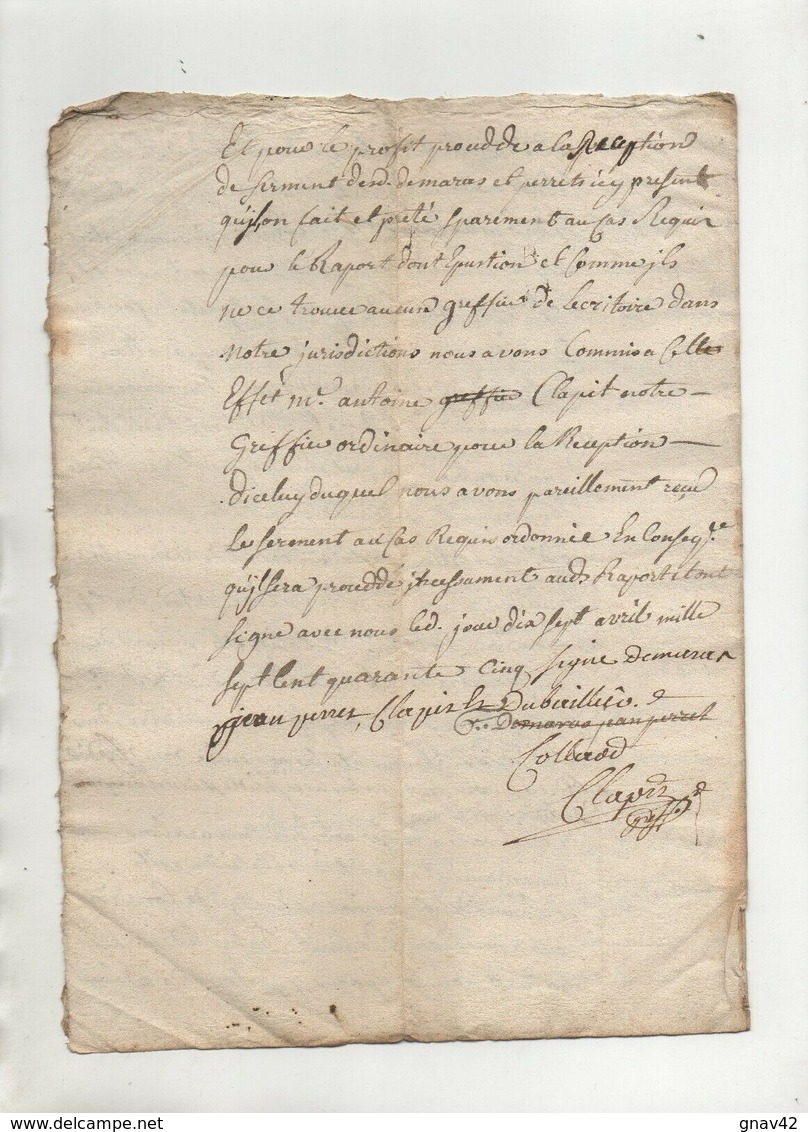 Et pour le profit proceddé a la Reception
de serment desd. demaras et perret icy present
qu'ils on fait et preté sparement au cas Requis
pour le Raport dont question et Comme jls
ne ce trouve aucun greffier de lecritoire dans
notre jurisdictions nous avons Commis a Celle
Effet m.e antoine greffier Clapit notre
Greffier ordinaire pour la Reception
diceluy duquel nous avons pareillement reçu
le serment au cas Requis ordonnée En Conseq.ce
qu'jl sera proceddé jncessament aud. Raport et ont
signe avec nous led. jour dix sept avril mille
sept Cent quarante Cinq signe demaras
jean perret, Clapit
Demaras jean perret
Collaod
Clapit
greff.
gnav42